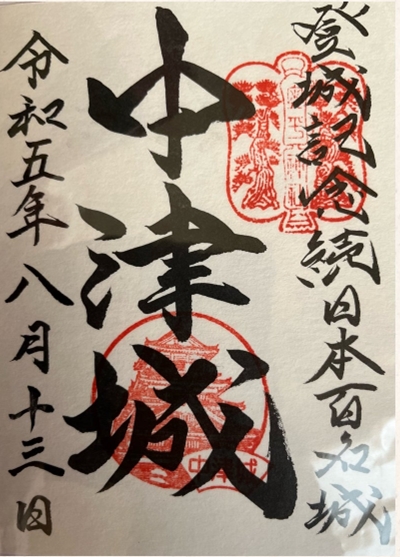 登城記念 続日本百名城
中津城
令和五年八月十三日
中津城